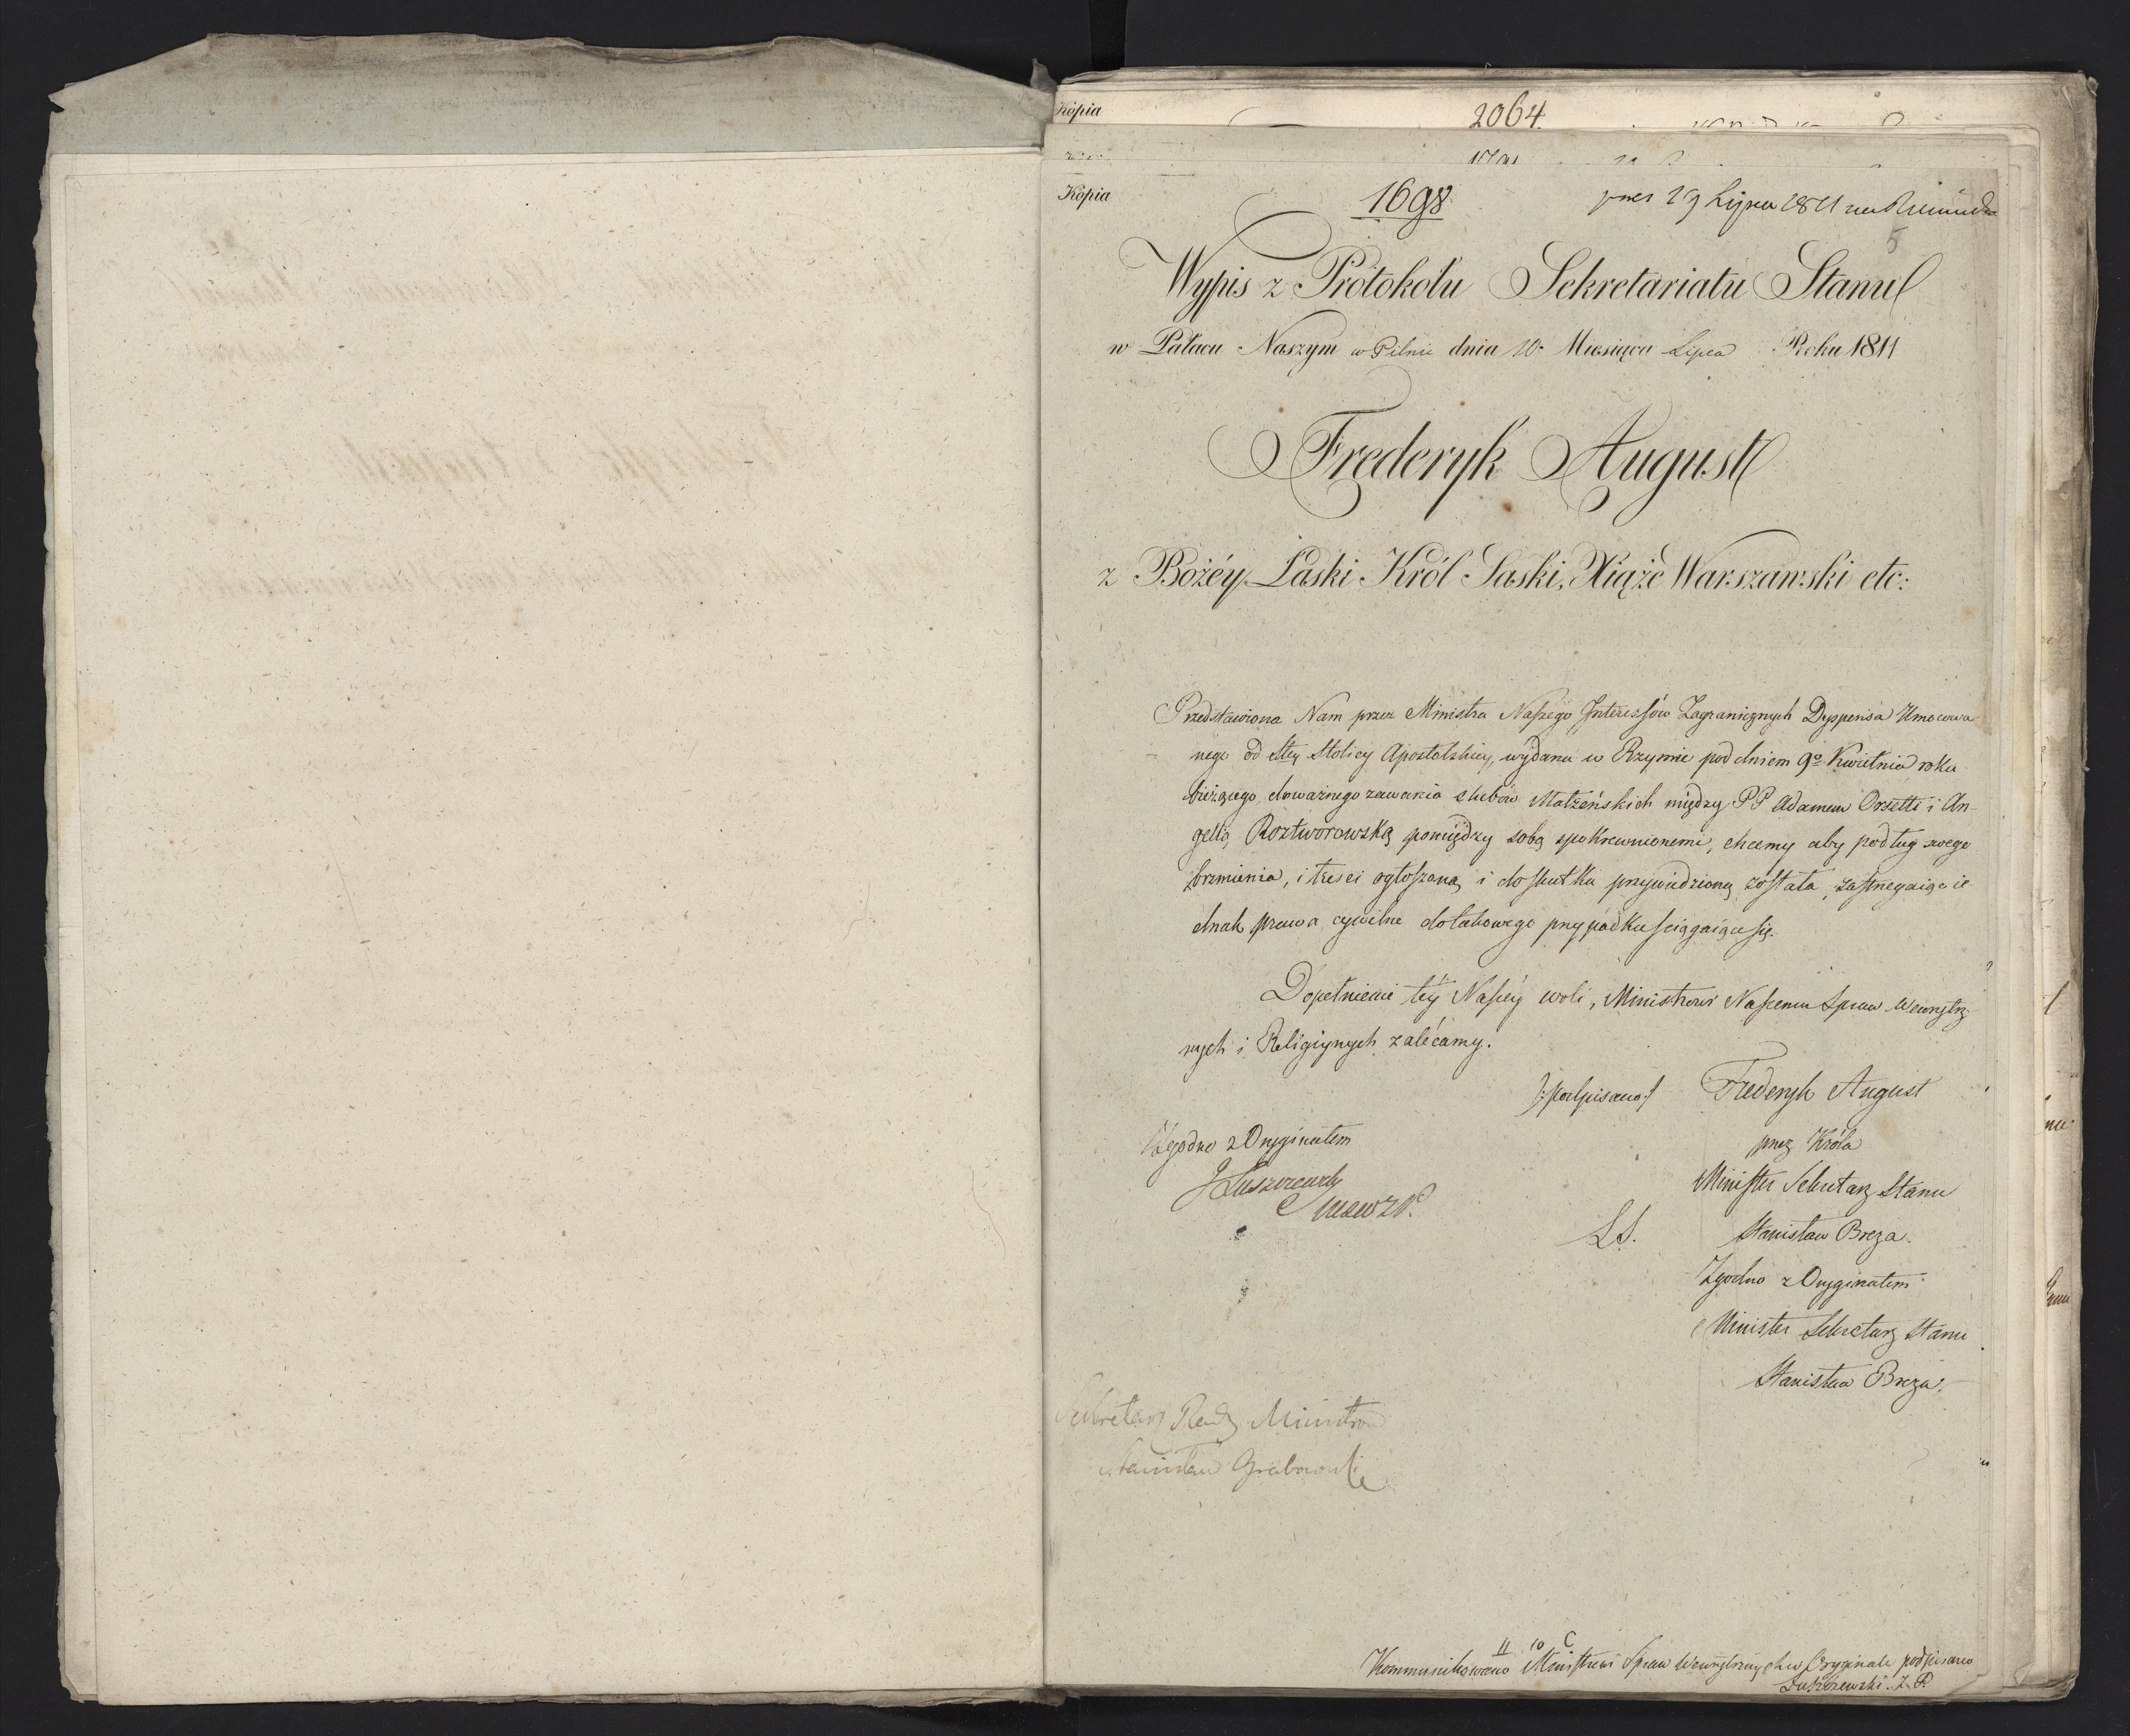 Kopia 2064.
Kopia 1698 pres 29 Lipca 1811
5
Wypis z Protokołu Sekretariatu Stanu
w Pałacu Naszym w Pilnie dnia 10. Miesiąca Lipca Roku 1811
Frederyk August
z Bożéy Łaski Król Saski, Xiąże Warszawski etc:
Przedstawiona Nam przez Ministra Naszego Interessów Zagranicznych Dyspensa Umocowa-
nego od Stey Stolicy Apostolskiey, wydana w Rzymie pod dniem 9º Kwietnia roku
bieżącego do ważnego zawarcia slubów Małżeńskich między PP Adamem Orsetti i An-
gellą Roztworowską pomiędzy sobą spokrewnionemi, chcemy aby podług swego
brzmienia, i tresci ogłoszoną i do skutku przywiedzioną została, zastrzegaiąc ie-
dnak prawa cywilne do takowego przypadku sciągaiące się.
Dopełnienie téy Naszéy woli, Ministrowi Naszemu Spraw Wewnętrz-
nych i Religiynych zalécamy.
/:podpisano:/ Frederyk August
Zgodno z Oryginałem przez Króla
J Łuszczewsky Minister Sekretarz Stanu
LS. Stanisław Breza.
Zgodno z Oryginałem
Minister Sekretarz Stanu
Stanisław Breza.
Sekretarz Rady Ministrów
Stanisław Grabowski
Kommunikowano Ministrowi Spraw Wewnętrznych w Oryginale podpisano
Łuszczewski. Z. P.